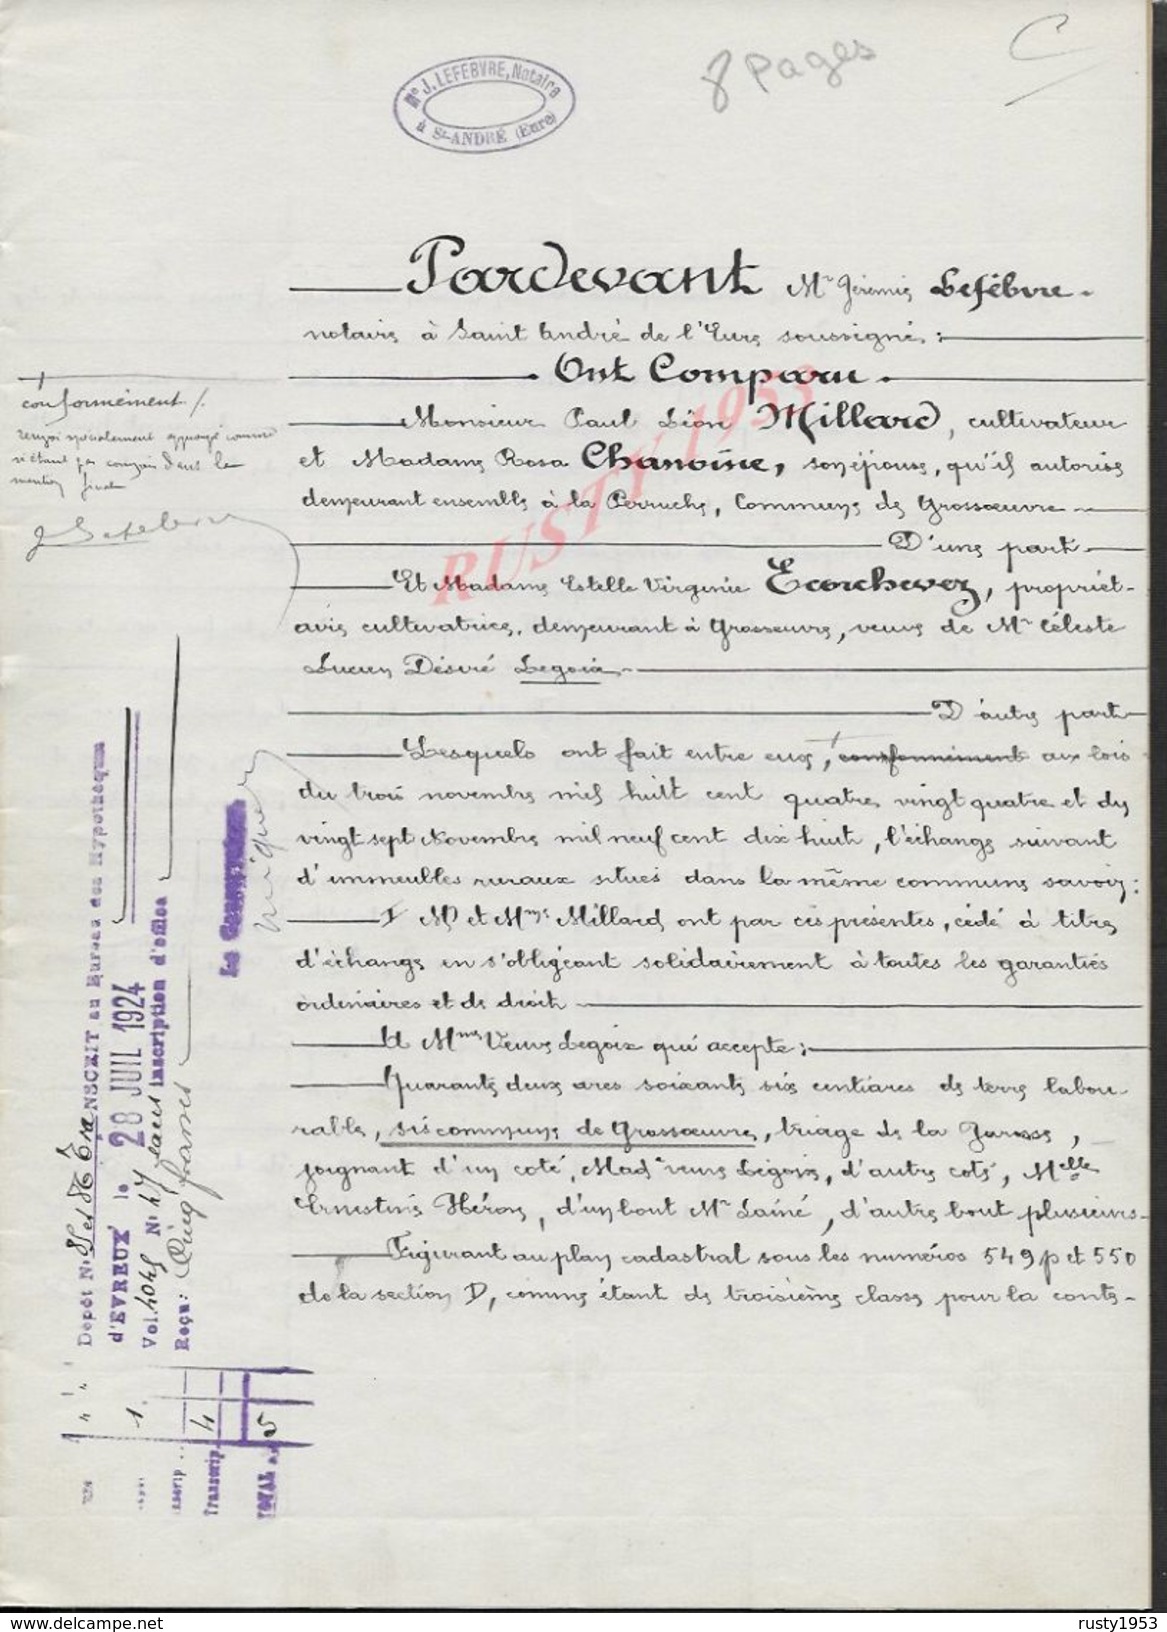 8 Pages
Me J. LEFEBVRE, Notaire
à St-ANDRÉ (Eure)
Pardevant Me Jérémie Lefébvre.
notaire à Saint André de l'Eure soussigné:
Ont Comparu.
Monsieur Paul Léon Millard, cultivateur
et Madame Rosa Chanoine, son épouse, qu'il autorise
demeurant ensemble à la Perruche, Commune de Grossoeuvre
D'une part
Et Madame Estelle Virginie Ecorchevez, propriét-
aire cultivatrice, demeurant à Grossoeuvre, veuve de Mr Céleste
Lucien Désiré Legoix
D'autre part
Lesquels ont fait entre eux, conformément aux lois
du trois novembre mil huit cent quatre vingt quatre et du
vingt sept Novembre mil neuf cent dix huit, l'échange suivant
d'immeubles ruraux situés dans la même commune savoir:
I M et Mme Millard ont par ces présentes, cédé à titre
d'échange en s'obligeant solidairement à toutes les garanties
ordinaires et de droit
A Mme Veuve Legoix qui accepte:
Quarante deux ares soixante six centiares de terre labou-
rable, sis commune de Grossoeuvre, triage de la Garenne,
joignant d'un coté, Made veuve Legoix, d'autre coté, Melle
Ernestine Héron, d'un bout Mr Lainé, d'autre bout plusieurs
Figurant au plan cadastral sous les numéros 549p et 550
de la section D, comme étant de troisième classe pour la conte-
conformément /.
renvoi spécialement approuvé comme
n'étant pas compris dans la
mention finale
J Lefebvre
Dépôt No TRANSCRIT au Bureau des Hypothèques
d'EVREUX le 28 JUIL 1924
Vol. 4045 No 47 sans inscription d'office
Reçu: Cinq francs
Le Conservateur
1
Transcrip. 4
TOTAL 5
RUSTY1953
www.delcampe.net
rusty1953